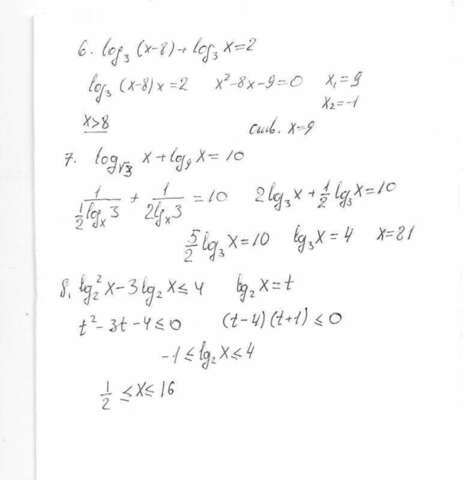 6. log₃ (x-8) + log₃ x = 2
log₃ (x-8)x = 2 x²-8x-9=0 x₁=9
x₂=-1
x>8 x=9
7. log_√3 x + log₉ x = 10
1/(½ lg_x 3) + 1/(2 lg_x 3) = 10 2 lg₃ x + ½ lg₃ x = 10
5/2 lg₃ x = 10 lg₃ x = 4 x=81
8. lg₂² x - 3 lg₂ x ≤ 4 lg₂ x = t
t² - 3t - 4 ≤ 0 (t-4)(t+1) ≤ 0
-1 ≤ lg₂ x ≤ 4
½ ≤ x ≤ 16